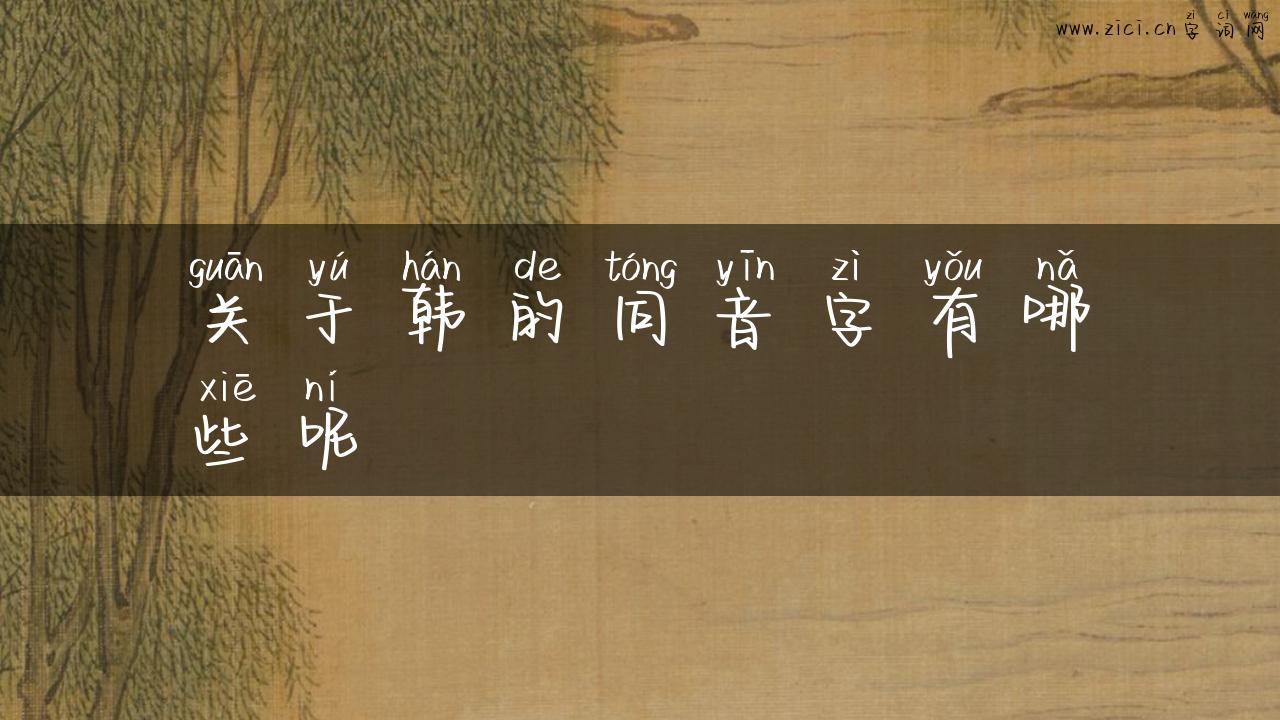 zì cí wǎng
www.zici.cn 字词网
guān yú hán de tóng yīn zì yǒu nǎ
关于韩的同音字有哪
xiē ní
些呢